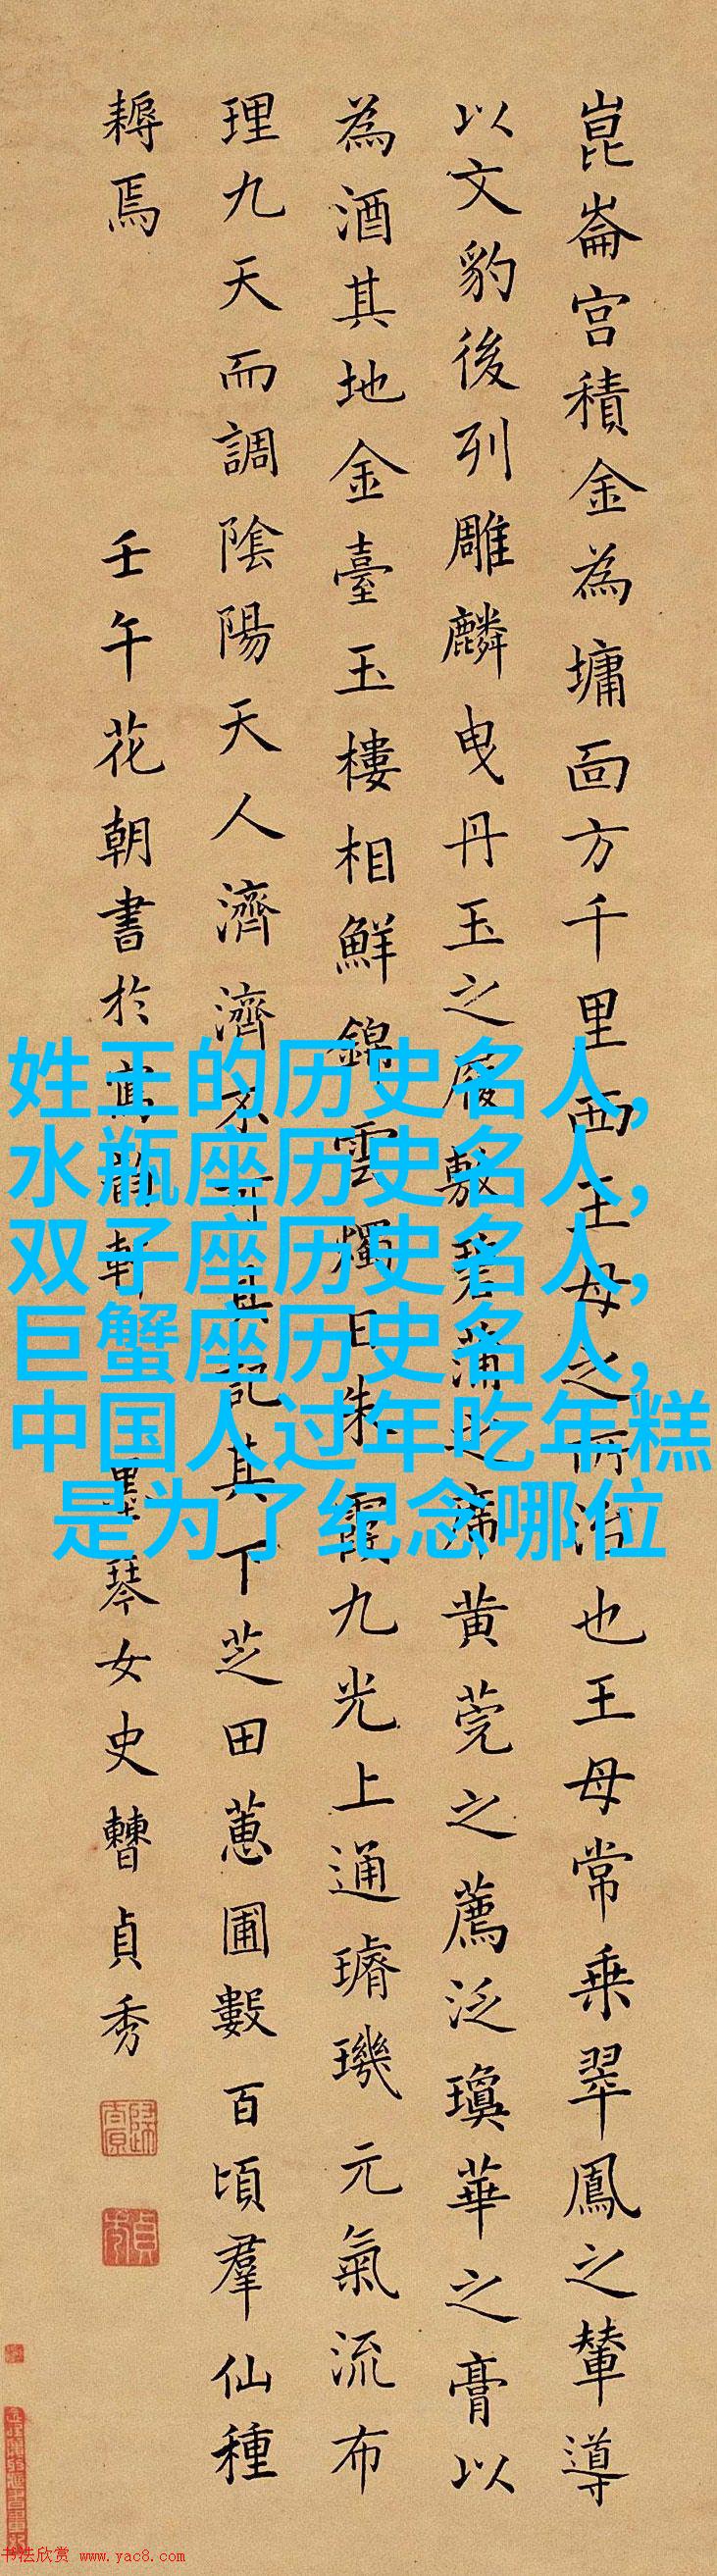 崑崙宮積金為墉面方千里西王母之所治也王母常乗翠鳳之輦導
以文豹後列雕麟曳丹玉之履敷碧蒲之席黄莞之薦泛瓊華之膏以
為酒其地金臺玉樓相鮮錦雲燭日朱霞九光上通璿璣元氣流布
理九天而調陰陽天人濟濟不可具記其下芝田蕙圃數百頃羣仙種
耨焉
壬午花朝書於寫韻軒墨琴女史曹貞秀
姓王的历史名人,
水瓶座历史名人,
双子座历史名人,
巨蟹座历史名人,
中国人过年吃年糕
是为了纪念哪位
书法欣赏 www.yac8.com